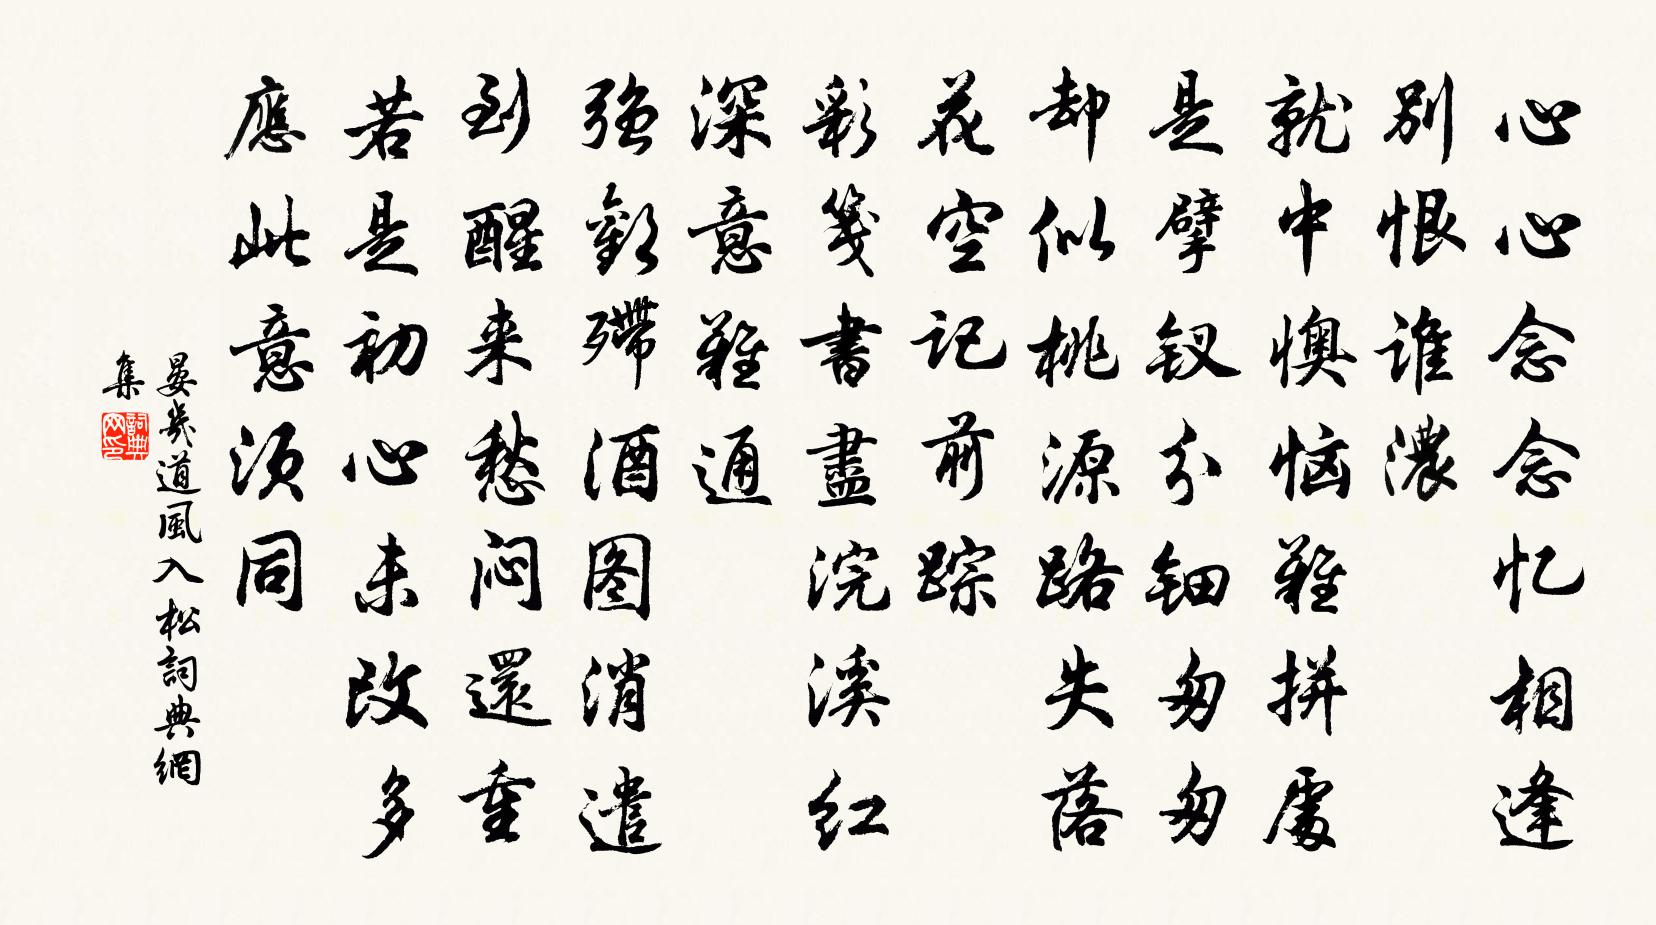 心心念念忆相逢
别恨谁濃
就中懊恼難拼處
是擘钗分钿匆匆
却似桃源路失落
花空记前踪
彩笺書盡浣溪红
深意難通
强歡殢酒图消遣
到醒来愁闷還重
若是初心未改多
應此意须同
晏幾道風入松詞典網
集
詞典网印